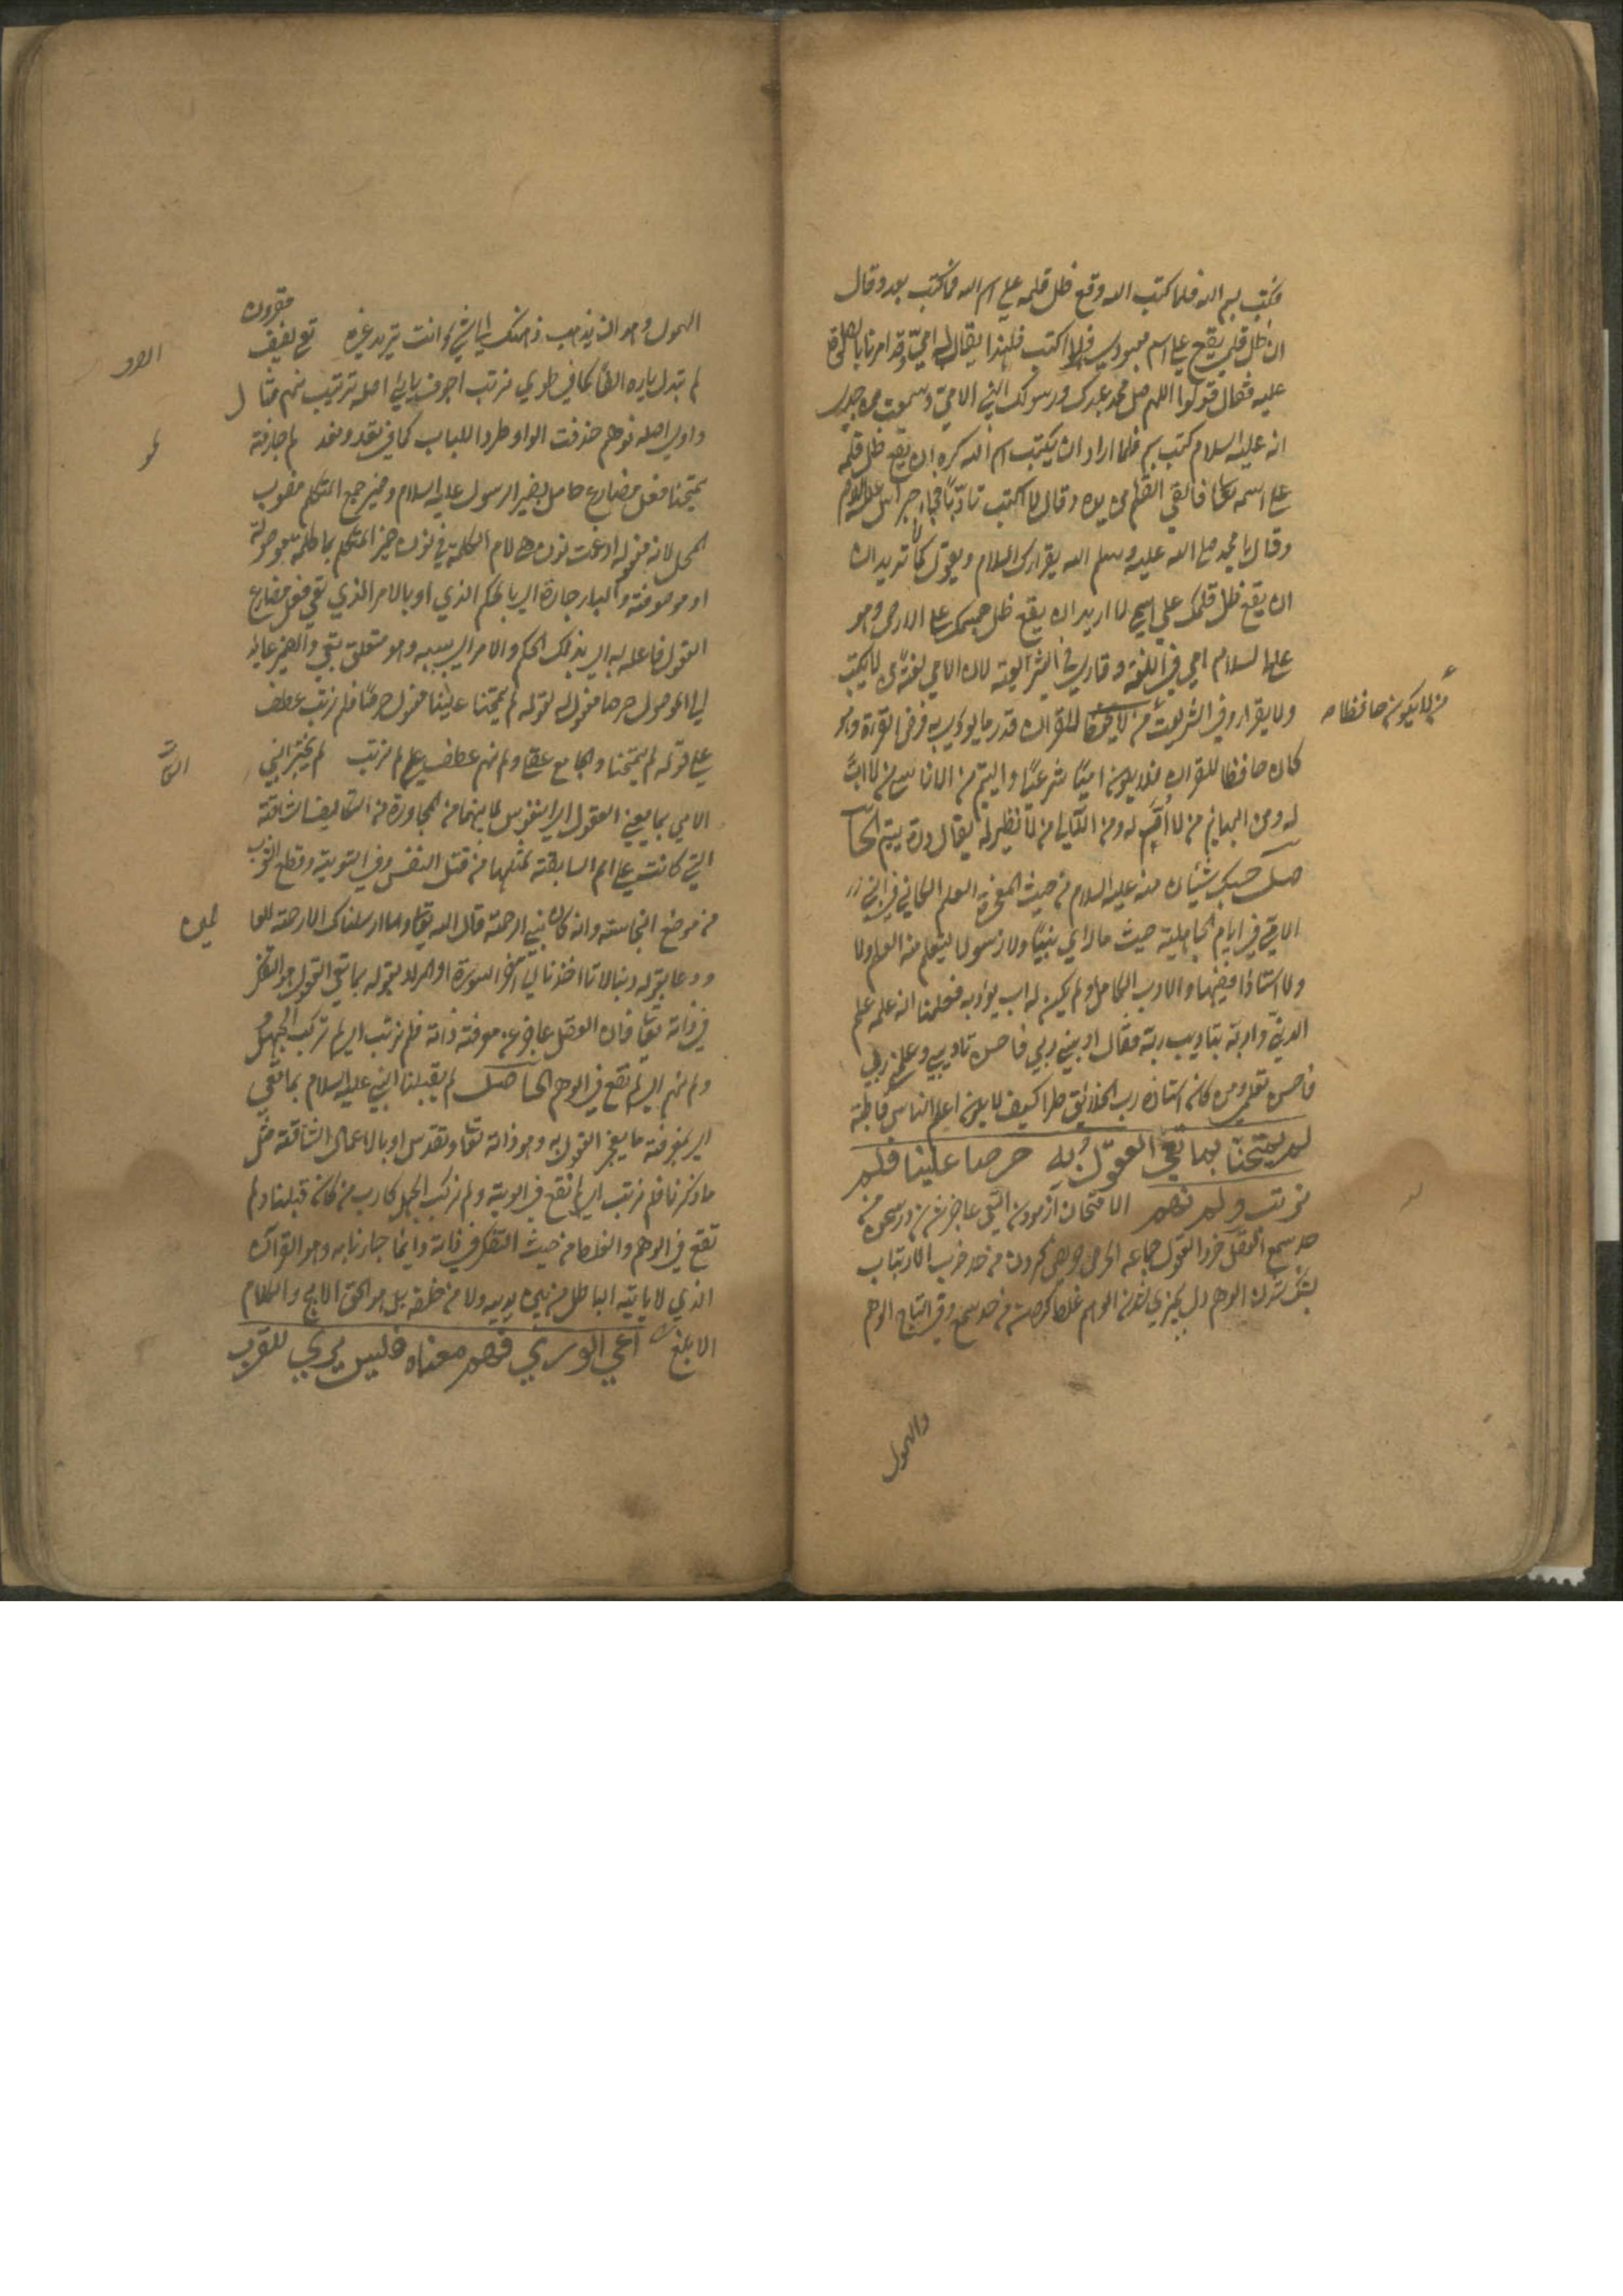 فكتب بسم الله فلما كتب الله وقع ظل قلمه على اسم الله فما كتب بعد وقال
ان ظل قلمي يقع على اسم معبودي فلا اكتب فلهذا يقال له امي وقد امرنا بالصلوة
عليه فقال قولوا اللهم صل محمد عبدك ورسولك النبي الامي وسمعت من جدي
انه عليه السلام كتب بسم فلما اراد ان يكتب اسم الله كره ان يقع ظل قلمه
على اسمه تعالى فالقى القلم من يده وقال لا اكتب تادبا فجاء جبرائيل عليه السلام
وقال يا محمد صلى الله عليه وسلم الله يقرأك السلام ويقول كما لا تريد ان
ان يقع ظل قلمك على اسمي لا اريد ان يقع ظل جسمك على الارض وهو
عليه السلام امي في اللغة وقاري في الشريعة لان الامي لغة من لا يكتب
ولا يقرأ وفي الشريعة من لا يحفظ للقران قدر ما يودي به فرض القراءة ولو
من لا يكون حافظا
كان حافظا للقران فلا يكون اميا شرعا واليتيم من الانسان من لا اب
له ومن البهايم من لا ام له ومن اللآلي من لا نظير له يقال درة يتيم الحا
صل حسبك شيئان منه عليه السلام من حيث المعجزة العلم الكائن في النبي
الامي في ايام الجاهلية حيث ما راى نبيا ولا رسولا ليتعلم منه العلم ولا
ولا استاذا فيضها والادب الكامل ولم يكن له اب يؤدبه فعلمنا انه علمه علم
الدني وادبه بتاديب ربه فقال ادبني ربي فاحسن تاديبي وعلمني ربي
فاحسن تعليمي ومن كان استاذه رب الخلائق طرا كيف لا يكون اعلم الناس قاطبة
لم يمتحنا بما تعي العقول به حرصا علينا فلم
نرتب ولم نهم الامتحان ازمودن العي عاجز شدن در سخن من
حد سمع العقل خرد العقول جماعه الحرص حريصي كردن من حد ضرب الارتياب
بشك شدن الوهم دل بچيزي شدن الوهم غلط كردن من حد سمع وفي التاج الوهم
والهول
الهول وهو ان يذهب ذهنك الى شيء وانت تريد غيره تعي لفيف
مقرون
لم تبدل ياره الفا كما في طوي نرتب اجوف يائي اصله نرتيب نهم مثال
واوي اصله نوهم حذفت الواو طردا للباب كما في يعد ونعد لم جازمة
يمتحنا فعل مضارع حامل ضمير الرسول عليه السلام وضمير جمع المتكلم منصوب
المحل لانه مفعوله ادغمت نون هي لام الكلمة في نون ضمير المتكلم بما كلمة ما موصولة
او موصوفة والباء جارة اي بالحكم الذي او بالامر الذي تعي فعل مضارع
العقول فاعله به اي بذلك الحكم والامر اي بسببه وهو متعلق بتعي والضمير عائد
الى الموصول حرصا مفعول له لقوله لم يمتحنا علينا مفعول حرصا فلم نرتب عطف
على قوله لم يمتحنا والجامع عقلي ولم نهم عطف على لم نرتب لم يختبر النبي
الامي بما يعني العقول اي النفوس لما بينهما من المجاورة من التكاليف الشاقة
التي كانت على امم السابقة مثلها من قتل النفس في التوبة وقطع الثوب
من موضع النجاسة وانه كان نبي الرحمة قال الله تعالى وما ارسلناك الا رحمة للعا
لمين
ودعا بقوله ربنا لا تؤاخذنا الى آخر السورة او المراد بقوله بما تعي العقول هو التفكر
في ذاته تعالى فان العقل عاجز عن معرفة ذاته فلم نرتب اي لم نرتكب الجهل
ولم نهم اي لم نقع في الوهم الحاصل لم يقبلنا النبي عليه السلام بما تعي
اي بمعرفة ما يعجز العقول به وهو ذاته تعالى وتقدس او بالاعمال الشاقة مثل
ما ذكرنا فلم نرتب اي لم نقع في الريبة ولم نركب الجهل كارب من كان قبلنا ولم
نقع في الوهم والغلط من حيث التفكر في ذاته وانما جاءنا به وهو القرآن
الذي لا ياتيه الباطل من بين يديه ولا من خلفه بل هو الحق الابلج والكلام
الابلغ اعيى الورى فهم معناه فليس يرى للقرب